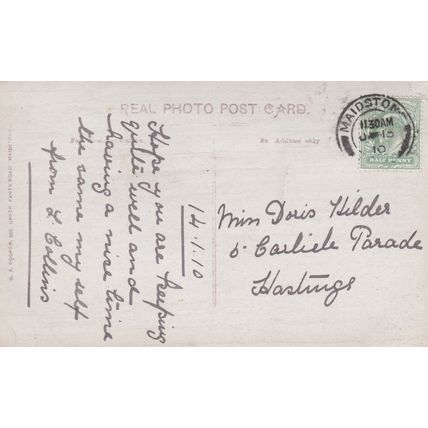 REAL PHOTO POST CARD.
For Address only
MAIDSTON
1130AM
JA 15
10
HALF PENNY
Hope you are keeping
quite well and
having a nice time
the same my self
from L. Collins
14.1.10
Miss Doris Hilder
5 Carlisle Parade
Hastings
G. A. COOPER, UPPER FANT ROAD, MAIDSTONE